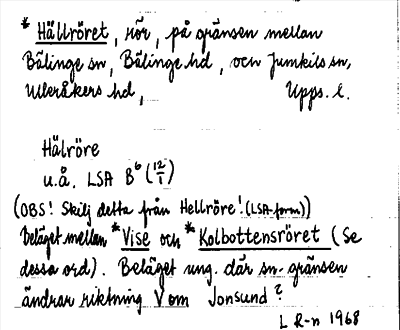 * Hällröret, rör, på gränsen mellan
Bälinge sn, Bälinge hd, och Jumkils sn,
Ulleråkers hd, Upps. l.
Hälröre
u.å. LSA B6 (12/1)
(OBS! Skilj detta från Hellröre! (LSA-form))
Beläget mellan *Vise och *Kolbottensröret (se
dessa ord). Beläget ung. där sn-gränsen
ändrar riktning V om Jonsund?
L R-n 1968